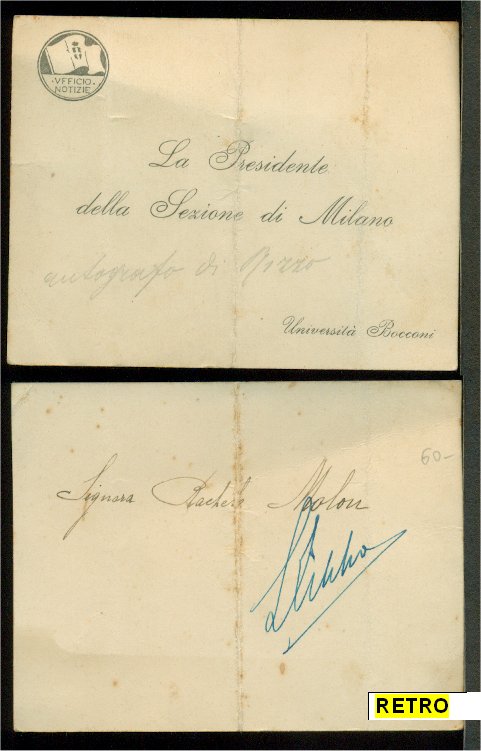 UFFICIO
NOTIZIE
La Presidente
della Sezione di Milano
autografo di Rizzo
Università Bocconi
60-
Signora Rachele Molon
RETRO